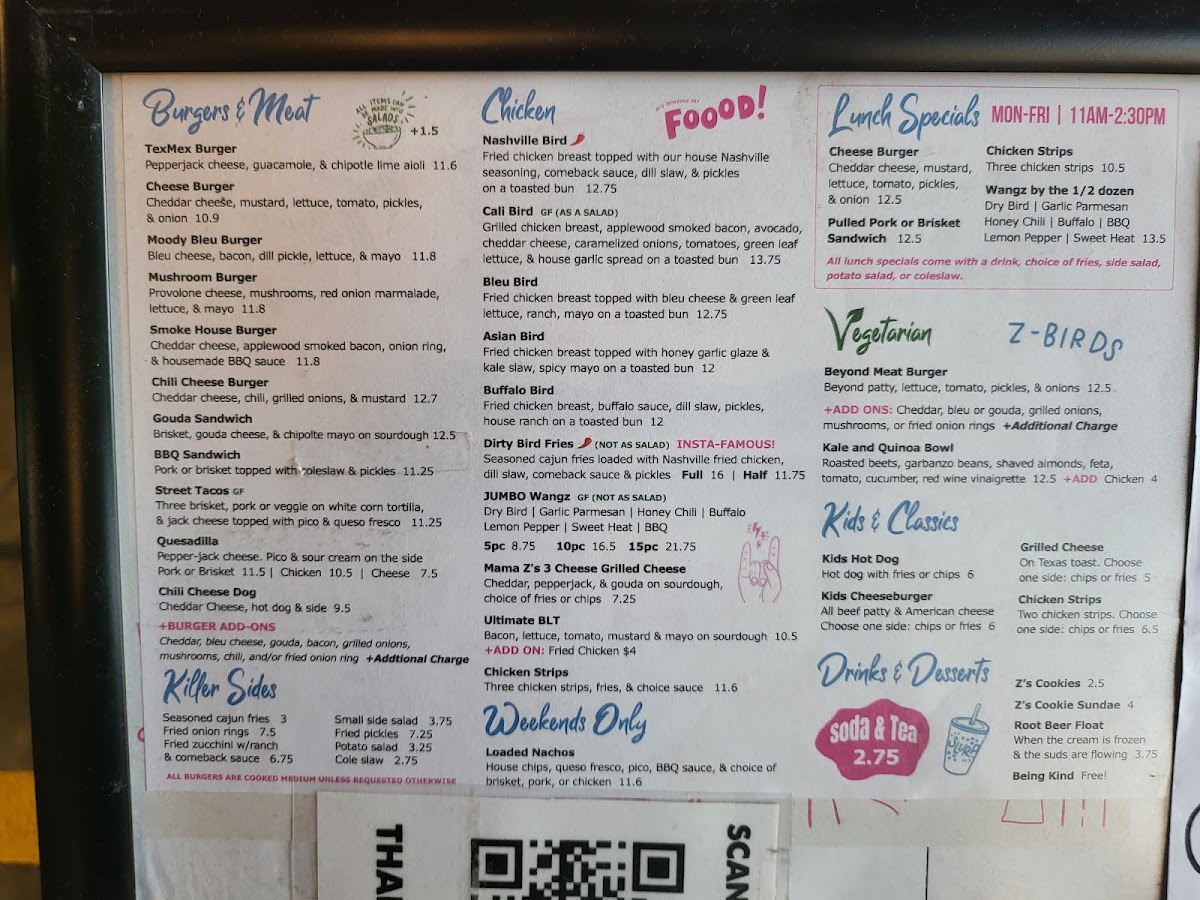 Burgers & Meat
ALL ITEMS CAN
BE MADE INTO
SALADS
+1.5
TexMex Burger
Pepperjack cheese, guacamole, & chipotle lime aioli 11.6
Cheese Burger
Cheddar cheese, mustard, lettuce, tomato, pickles,
& onion 10.9
Moody Bleu Burger
Bleu cheese, bacon, dill pickle, lettuce, & mayo 11.8
Mushroom Burger
Provolone cheese, mushrooms, red onion marmalade,
lettuce, & mayo 11.8
Smoke House Burger
Cheddar cheese, applewood smoked bacon, onion ring,
& housemade BBQ sauce 11.8
Chili Cheese Burger
Cheddar cheese, chili, grilled onions, & mustard 12.7
Gouda Sandwich
Brisket, gouda cheese, & chipolte mayo on sourdough 12.5
BBQ Sandwich
Pork or brisket topped with coleslaw & pickles 11.25
Street Tacos GF
Three brisket, pork or veggie on white corn tortilla,
& jack cheese topped with pico & queso fresco 11.25
Quesadilla
Pepper-jack cheese. Pico & sour cream on the side
Pork or Brisket 11.5 | Chicken 10.5 | Cheese 7.5
Chili Cheese Dog
Cheddar Cheese, hot dog & side 9.5
+BURGER ADD-ONS
Cheddar, bleu cheese, gouda, bacon, grilled onions,
mushrooms, chili, and/or fried onion ring +Addtional Charge
Killer Sides
Seasoned cajun fries 3
Fried onion rings 7.5
Fried zucchini w/ranch
& comeback sauce 6.75
Small side salad 3.75
Fried pickles 7.25
Potato salad 3.25
Cole slaw 2.75
ALL BURGERS ARE COOKED MEDIUM UNLESS REQUESTED OTHERWISE
Chicken
FOOOD!
Nashville Bird
Fried chicken breast topped with our house Nashville
seasoning, comeback sauce, dill slaw, & pickles
on a toasted bun 12.75
Cali Bird GF (AS A SALAD)
Grilled chicken breast, applewood smoked bacon, avocado,
cheddar cheese, caramelized onions, tomatoes, green leaf
lettuce, & house garlic spread on a toasted bun 13.75
Bleu Bird
Fried chicken breast topped with bleu cheese & green leaf
lettuce, ranch, mayo on a toasted bun 12.75
Asian Bird
Fried chicken breast topped with honey garlic glaze &
kale slaw, spicy mayo on a toasted bun 12
Buffalo Bird
Fried chicken breast, buffalo sauce, dill slaw, pickles,
house ranch on a toasted bun 12
Dirty Bird Fries (NOT AS SALAD) INSTA-FAMOUS!
Seasoned cajun fries loaded with Nashville fried chicken,
dill slaw, comeback sauce & pickles Full 16 | Half 11.75
JUMBO Wangz GF (NOT AS SALAD)
Dry Bird | Garlic Parmesan | Honey Chili | Buffalo
Lemon Pepper | Sweet Heat | BBQ
5pc 8.75 10pc 16.5 15pc 21.75
Mama Z's 3 Cheese Grilled Cheese
Cheddar, pepperjack, & gouda on sourdough,
choice of fries or chips 7.25
Ultimate BLT
Bacon, lettuce, tomato, mustard & mayo on sourdough 10.5
+ADD ON: Fried Chicken $4
Chicken Strips
Three chicken strips, fries, & choice sauce 11.6
Weekends Only
Loaded Nachos
House chips, queso fresco, pico, BBQ sauce, & choice of
brisket, pork, or chicken 11.6
Lunch Specials MON-FRI | 11AM-2:30PM
Cheese Burger
Cheddar cheese, mustard,
lettuce, tomato, pickles,
& onion 12.5
Pulled Pork or Brisket
Sandwich 12.5
Chicken Strips
Three chicken strips 10.5
Wangz by the 1/2 dozen
Dry Bird | Garlic Parmesan
Honey Chili | Buffalo | BBQ
Lemon Pepper | Sweet Heat 13.5
All lunch specials come with a drink, choice of fries, side salad,
potato salad, or coleslaw.
Vegetarian
Z-BIRDS
Beyond Meat Burger
Beyond patty, lettuce, tomato, pickles, & onions 12.5
+ADD ONS: Cheddar, bleu or gouda, grilled onions,
mushrooms, or fried onion rings +Additional Charge
Kale and Quinoa Bowl
Roasted beets, garbanzo beans, shaved almonds, feta,
tomato, cucumber, red wine vinaigrette 12.5 +ADD Chicken 4
Kids & Classics
Kids Hot Dog
Hot dog with fries or chips 6
Kids Cheeseburger
All beef patty & American cheese
Choose one side: chips or fries 6
Grilled Cheese
On Texas toast. Choose
one side: chips or fries 5
Chicken Strips
Two chicken strips. Choose
one side: chips or fries 6.5
Drinks & Desserts
soda & Tea
2.75
SLURP
Z's Cookies 2.5
Z's Cookie Sundae 4
Root Beer Float
When the cream is frozen
& the suds are flowing 3.75
Being Kind Free!
THA
SCAN